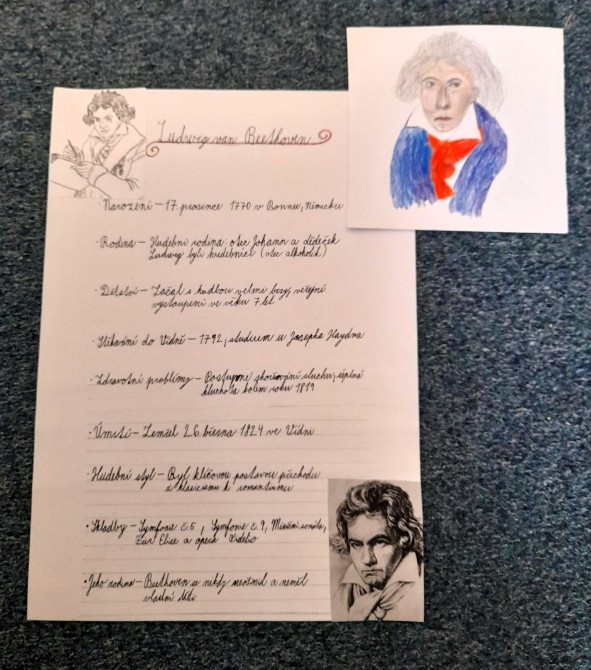 Ludwig van Beethoven
· Narození – 17. prosince 1770 v Bonnu, Německu
· Rodina – Hudební rodina: otec Johann a dědeček
Ludwig byli hudebníci (otec alkoholik)
· Dětství – Začal s hudbou velmi brzy, veřejní
vystoupení ve věku 7 let
· Stěhování do Vídně – 1792, studium u Josepha Haydna
· Zdravotní problémy – Postupné zhoršování sluchu, úplná
hluchota kolem roku 1819
· Úmrtí – Zemřel 26. března 1824 ve Vídni
· Hudební styl – Byl klíčovou postavou přechodu
z klasicismu k romantismu
· Skladby – Symfonie č.5, Symfonie č.9, Měsíční sonáta,
Für Elise a opera
· Jeho rodina – Beethoven se nikdy neoženil a neměl
vlastní děti